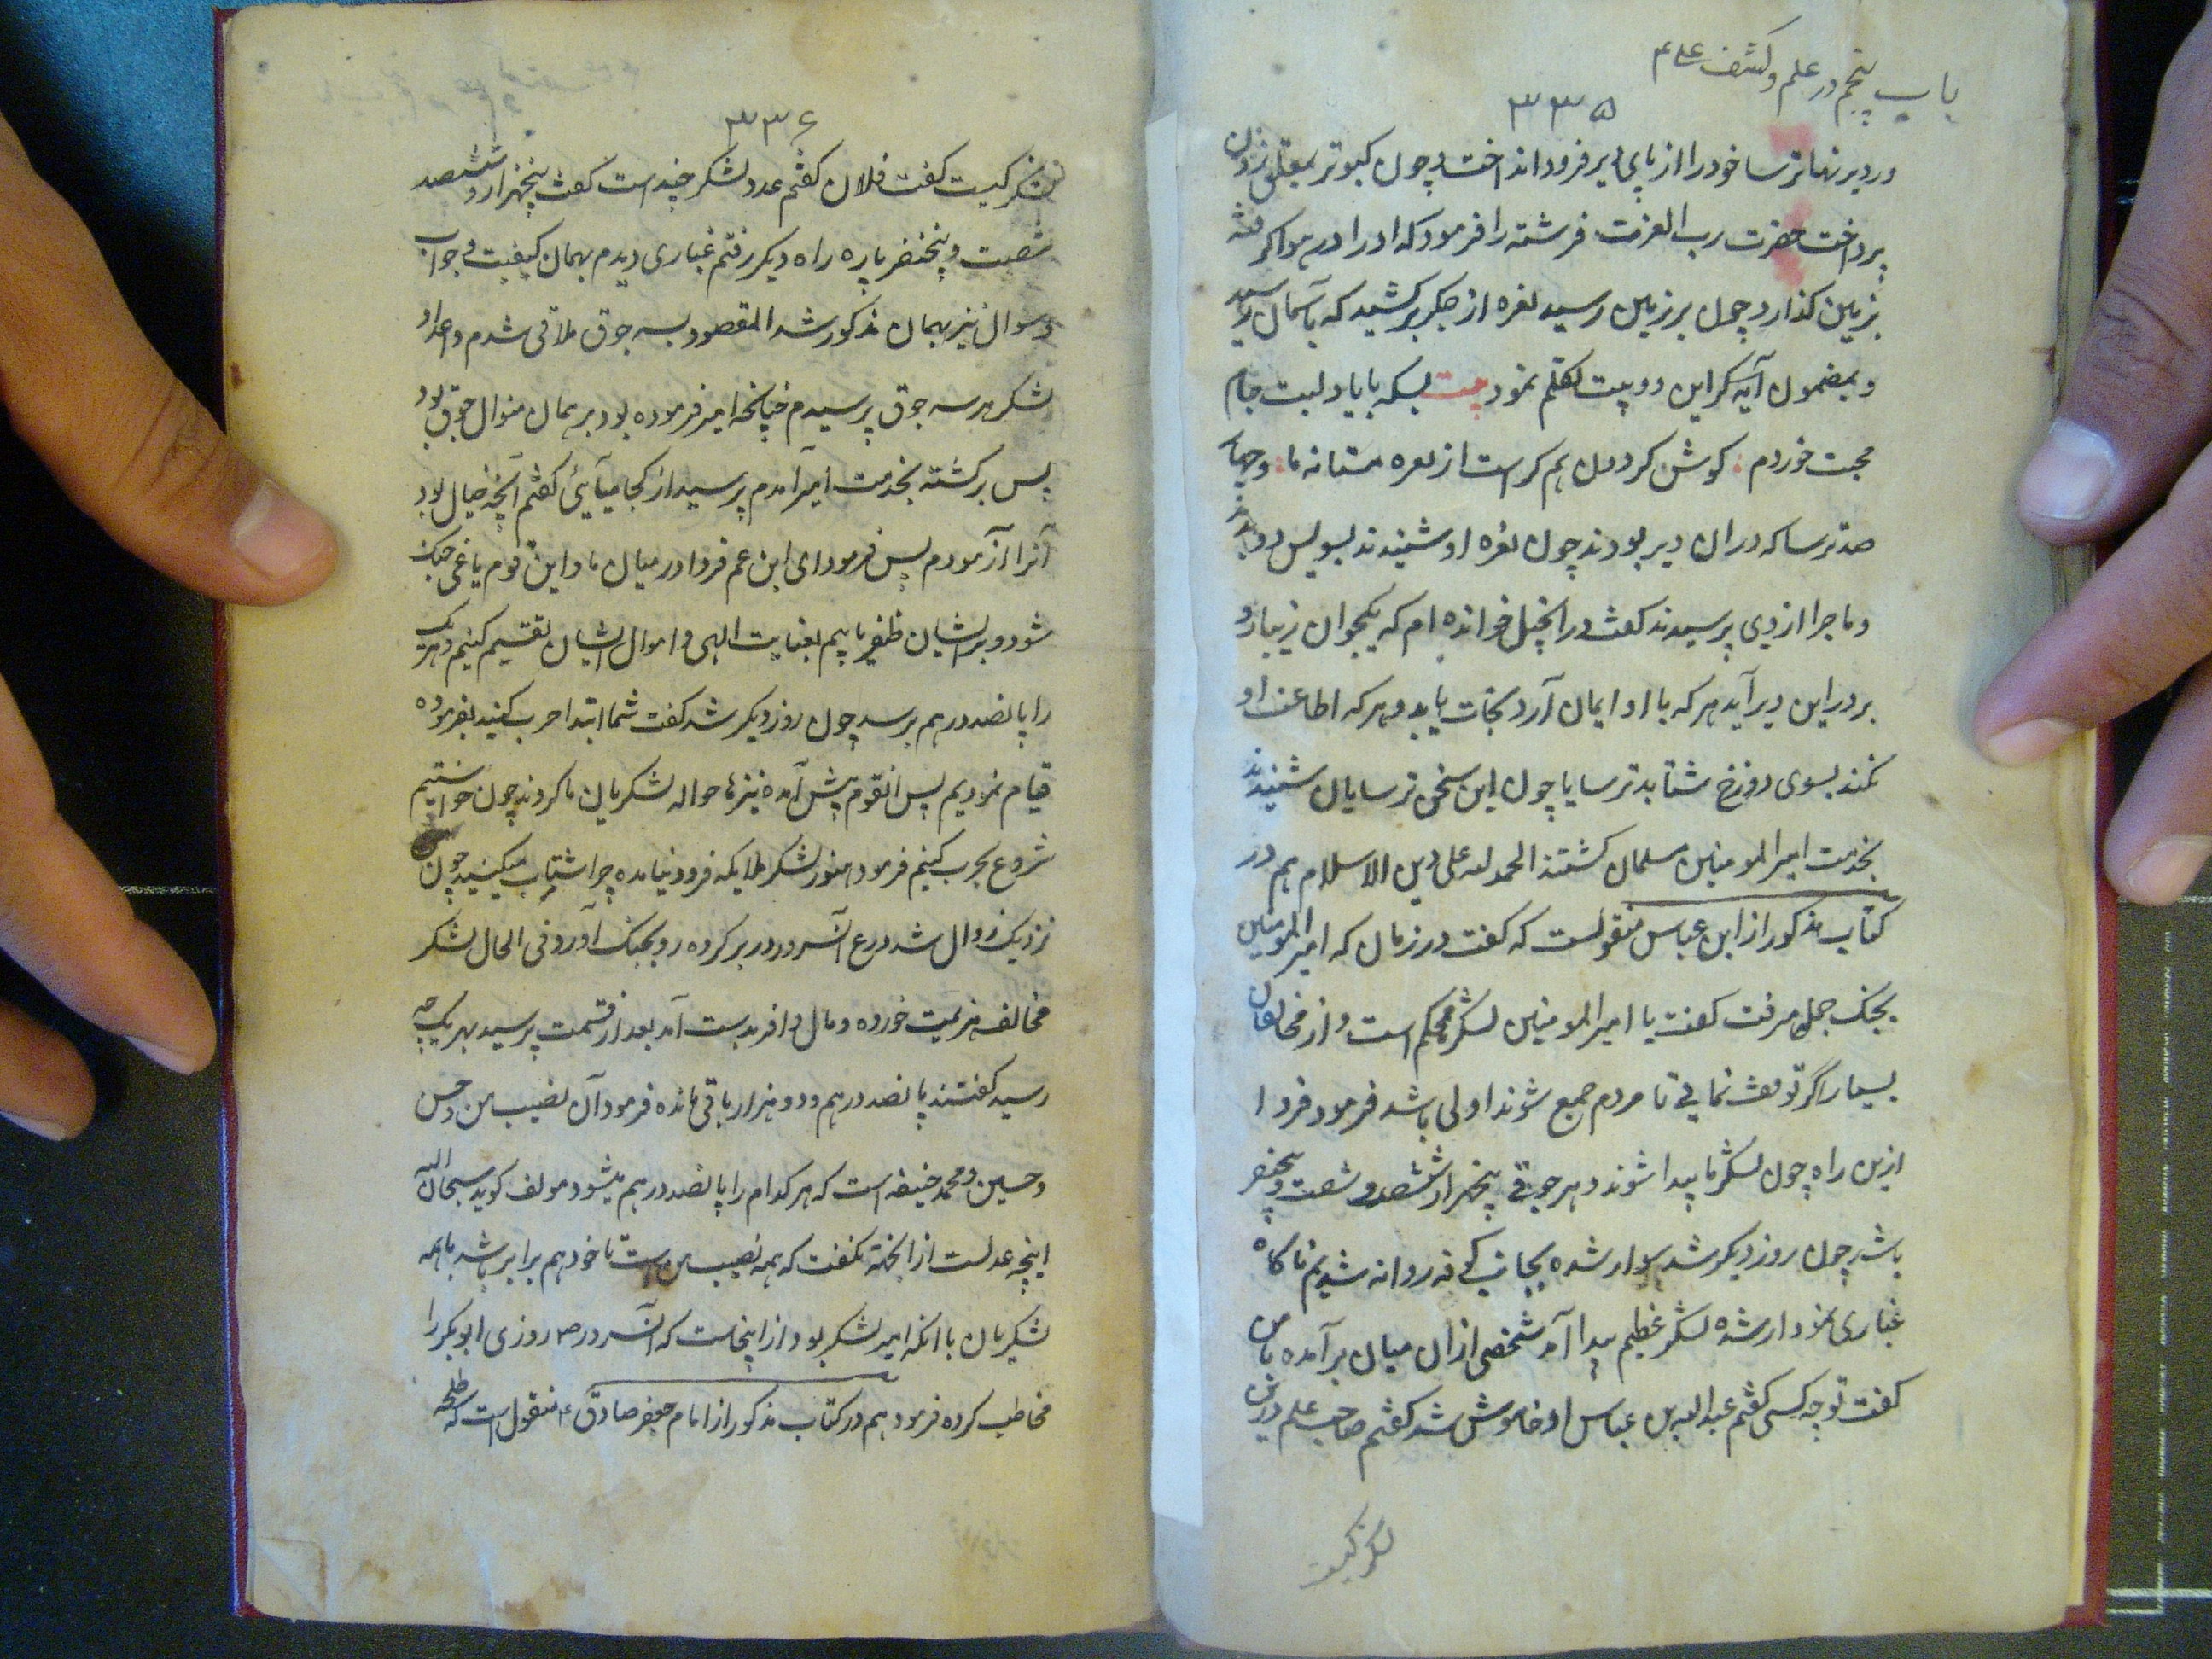 باب پنجم در علم و کشف علی ع
۳۳۵
ورد بر نهاد ترسا خود را از پای دیر فرود انداخت و چون کبوتر بمعلق زدن
پرداخت حضرت رب العزت فرشته را فرمود که او را در هوا گرفته
بزمین گذارد چون بر زمین رسید نعره از جگر برکشید که بآسمان رسید
و بمضمون آیه کر این دو بیت تکلم نمود بیت بسکه با یاد لبت جام
محبت خوردم کوش کردون هم کر است از نعره مستانه ما و چهار
صد ترسا که در ان دیر بودند چون نعره او شنیدند بسویس دویدند
و ماجرا از وی پرسیدند کفت در انجیل خوانده ام که یکجوان زیبارو
بر در این دیر آید هر که با او ایمان آرد نجات یابد و هر که اطاعت او
نکند بسوی دوزخ شتابد ترسایا چون این سخن ترسایان شنیدند
بخدمت امیر المومنین مسلمان کشتند الحمد لله علی دین الاسلام هم در
کتاب مذکور از ابن عباس منقولست که کفت در زمان که امیر المومنین
بجنک جمل میرفت کفت یا امیر المومنین لشکر ما کم است و از مخالفان
بسیار اگر توقف نمائی تا مردم جمع شوند اولی باشد فرمود فردا
ازین راه چون لشکر ما پیدا شوند و هر جوقی پنجهزار ششصد و شصت و پنجنفر
باشد چون روز دیکر شد سوار شده بجانب کوفه روانه شدیم ناکاه
غباری نمودار شده لشکر عظیم پیدا آمد شخصی از ان میان برآمده بامن
کفت تو چه کسی کفتم عبد الله بن عباس او خاموش شد کفتم صاحب علم درین
لشکر کیست
۳۳۶
لشکر کیست کفت فلان کفتم عدد لشکر چند است کفت پنجهزار و ششصد
شصت و پنجنفر پاره راه دیکر رفتم غباری دیدم بهمان کیفیت و جواب
و سوال نیز بهمان مذکور شد المقصود بسه جوق ملاقی شدم و اعداد
لشکر هر سه جوق پرسیدم چنانچه امیر فرموده بود بر همان منوال جوق بود
پس برکشته بخدمت امیر آمدم پرسید از کجا میآیی کفتم آنچه خیال بود
آنرا آزمودم پس فرمود ای ابن عم فردا در میان ما و این قوم یاغی جنک
شود و بر ایشان ظفر یابیم بعنایت الهی و اموال ایشان تقسیم کنیم و هریک
را پانصد درهم برسد چون روز دیکر شد کفت شما ابتدا حرب کنید بفرموده
قیام نمودیم پس انقوم پیش آمده نیزها حواله لشکریان ما کردند چون خواستیم
شروع بحرب کنیم فرمود هنوز لشکر ملایکه فرود نیامده چرا شتاب میکنید چون
نزدیک زوال شد درع آنسرور در بر کرده رو بجنک آورد فی الحال لشکر
مخالف هزیمت خورده و مال وافر بدست آمد بعد از قسمت پرسید بهریک چه
رسید کفتند پانصد درهم و دو هزار باقی مانده فرمود آن نصیب من و حسن
و حسین و محمد حنیفه است که هر کدام را پانصد درهم میشود مولف کوید سبحان الله
اینچه عدلست از انجهة نکفت که همه نصیب من است تا خود هم برابر باشد باهمه
لشکریان با انکه امیر لشکر بود از اینجاست که آنسرور ص روزی ابوبکر را
مخاطب کرده فرمود هم در کتاب مذکور از امام جعفر صادق ع منقول است که طلحه